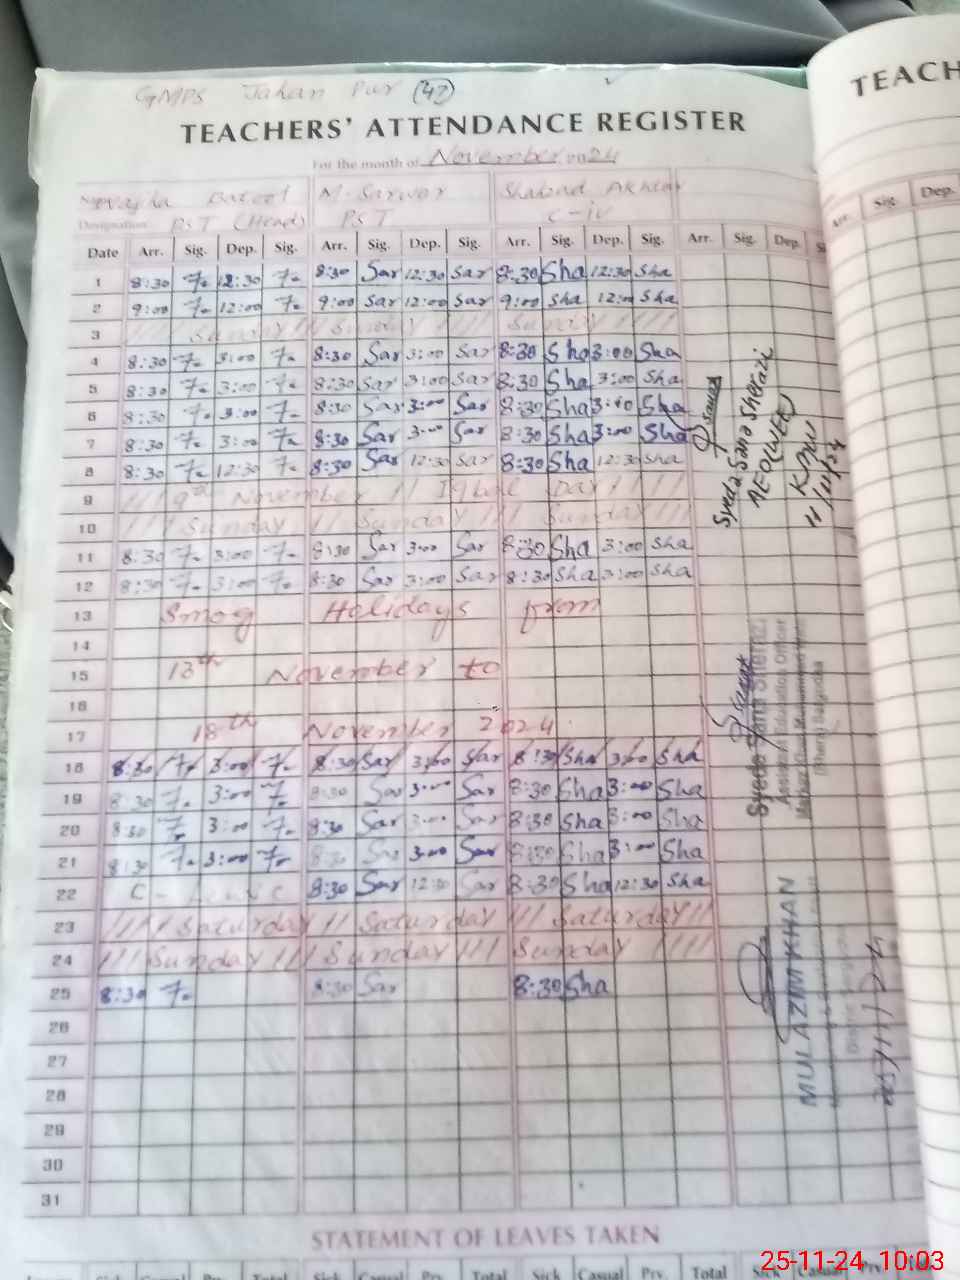 GMPS Jahan Pur (47)
TEACHERS' ATTENDANCE REGISTER
TEACH
For the month of November 2024
Batool M. Sarwar Shahzad Akhtar
Designation PST (Head) PST C-iv
Date Arr. Sig. Dep. Sig. Arr. Sig. Dep. Sig. Arr. Sig. Dep. Sig. Arr. Sig. Dep. Arr. Sig. Dep.
1 8:30 12:30 8:30 Sar 12:30 Sar 8:30 Sha 12:30 Sha
2 9:00 12:00 9:00 Sar 12:00 Sar 9:00 Sha 12:00 Sha
3 Sunday Sunday Sunday
4 8:30 3:00 8:30 Sar 3:00 Sar 8:30 Sha 3:00 Sha
5 8:30 3:00 8:30 Sar 3:00 Sar 8:30 Sha 3:00 Sha
6 8:30 3:00 8:30 Sar 3:00 Sar 8:30 Sha 3:00 Sha
7 8:30 3:00 8:30 Sar 3:00 Sar 8:30 Sha 3:00 Sha
8 8:30 12:30 8:30 Sar 12:30 Sar 8:30 Sha 12:30 Sha
9 9th November Iqbal Day
10 Sunday Sunday Sunday
11 8:30 3:00 8:30 Sar 3:00 Sar 8:30 Sha 3:00 Sha
12 8:30 3:00 8:30 Sar 3:00 Sar 8:30 Sha 3:00 Sha
13 Smog Holidays from
14
15 13th November to
16
17 18th November 2024
18 8:30 3:00 8:30 Sar 3:00 Sar 8:30 Sha 3:00 Sha
19 8:30 3:00 8:30 Sar 3:00 Sar 8:30 Sha 3:00 Sha
20 8:30 3:00 8:30 Sar 3:00 Sar 8:30 Sha 3:00 Sha
21 8:30 3:00 8:30 Sar 3:00 Sar 8:30 Sha 3:00 Sha
22 C-Leave 8:30 Sar 12:30 Sar 8:30 Sha 12:30 Sha
23 Saturday Saturday Saturday
24 Sunday Sunday Sunday
25 8:30 8:30 Sar 8:30 Sha
26
27
28
29
30
31
Syeda Sana Sherazi
AEO (WEE)
11/11/24
Syeda Sana Sheraz
Assistant Education Officer
MULAZIM KHAN
25/11/24
STATEMENT OF LEAVES TAKEN
Sick Casual Prv. Total Sick Casual Prv. Total Sick Casual Prv. Total Sick Casual Prv. Total
25-11-24 10:03